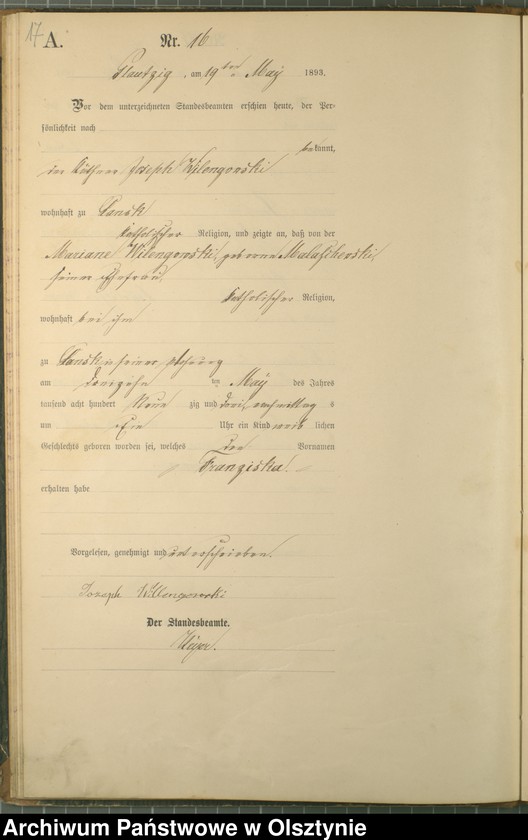 17 A.
Nr. 16
Plautzig, am 19ten May 1893.
Vor dem unterzeichneten Standesbeamten erschien heute, der Per-
sönlichkeit nach
bekannt,
der Käthner Joseph Wilengowski
wohnhaft zu Lansk
katholischer Religion, und zeigte an, daß von der
Mariane Wilengowski, geborene
seiner Ehefrau,
katholischer Religion,
wohnhaft bei ihm
zu Lansk in seiner Wohnung
am dreizehn ten May des Jahres
tausend acht hundert Neun zig und drei, nachmittag s
um Ein Uhr ein Kind weib lichen
Geschlechts geboren worden sei, welches den Vornamen
Franziska.
erhalten habe
Vorgelesen, genehmigt und unterschrieben.
Joseph
Der Standesbeamte.
Archiwum Państwowe w Olsztynie